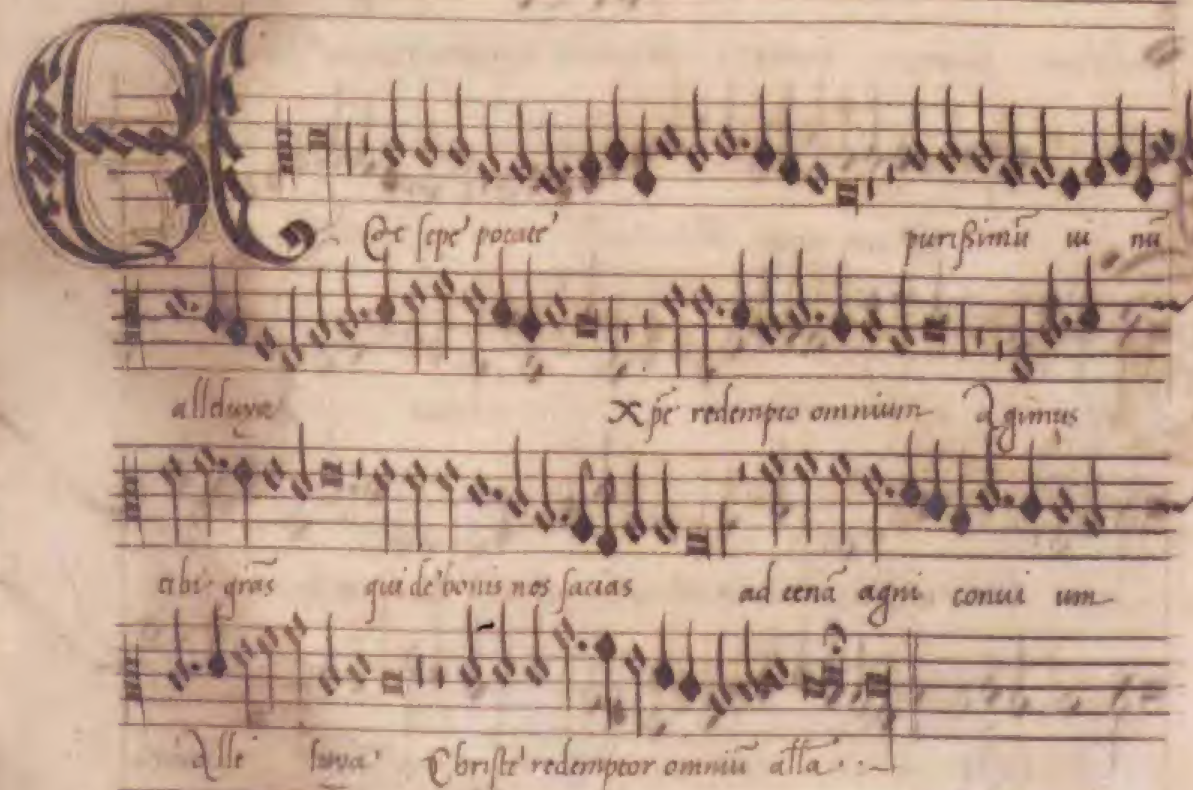 Et sepe potate purißimū ui nū
alleluya Xpē redempto omnium Agimus
tibi grās qui de bonis nos sacias ad cenā agni conui um
Alle luya Christe redemptor omniū alła